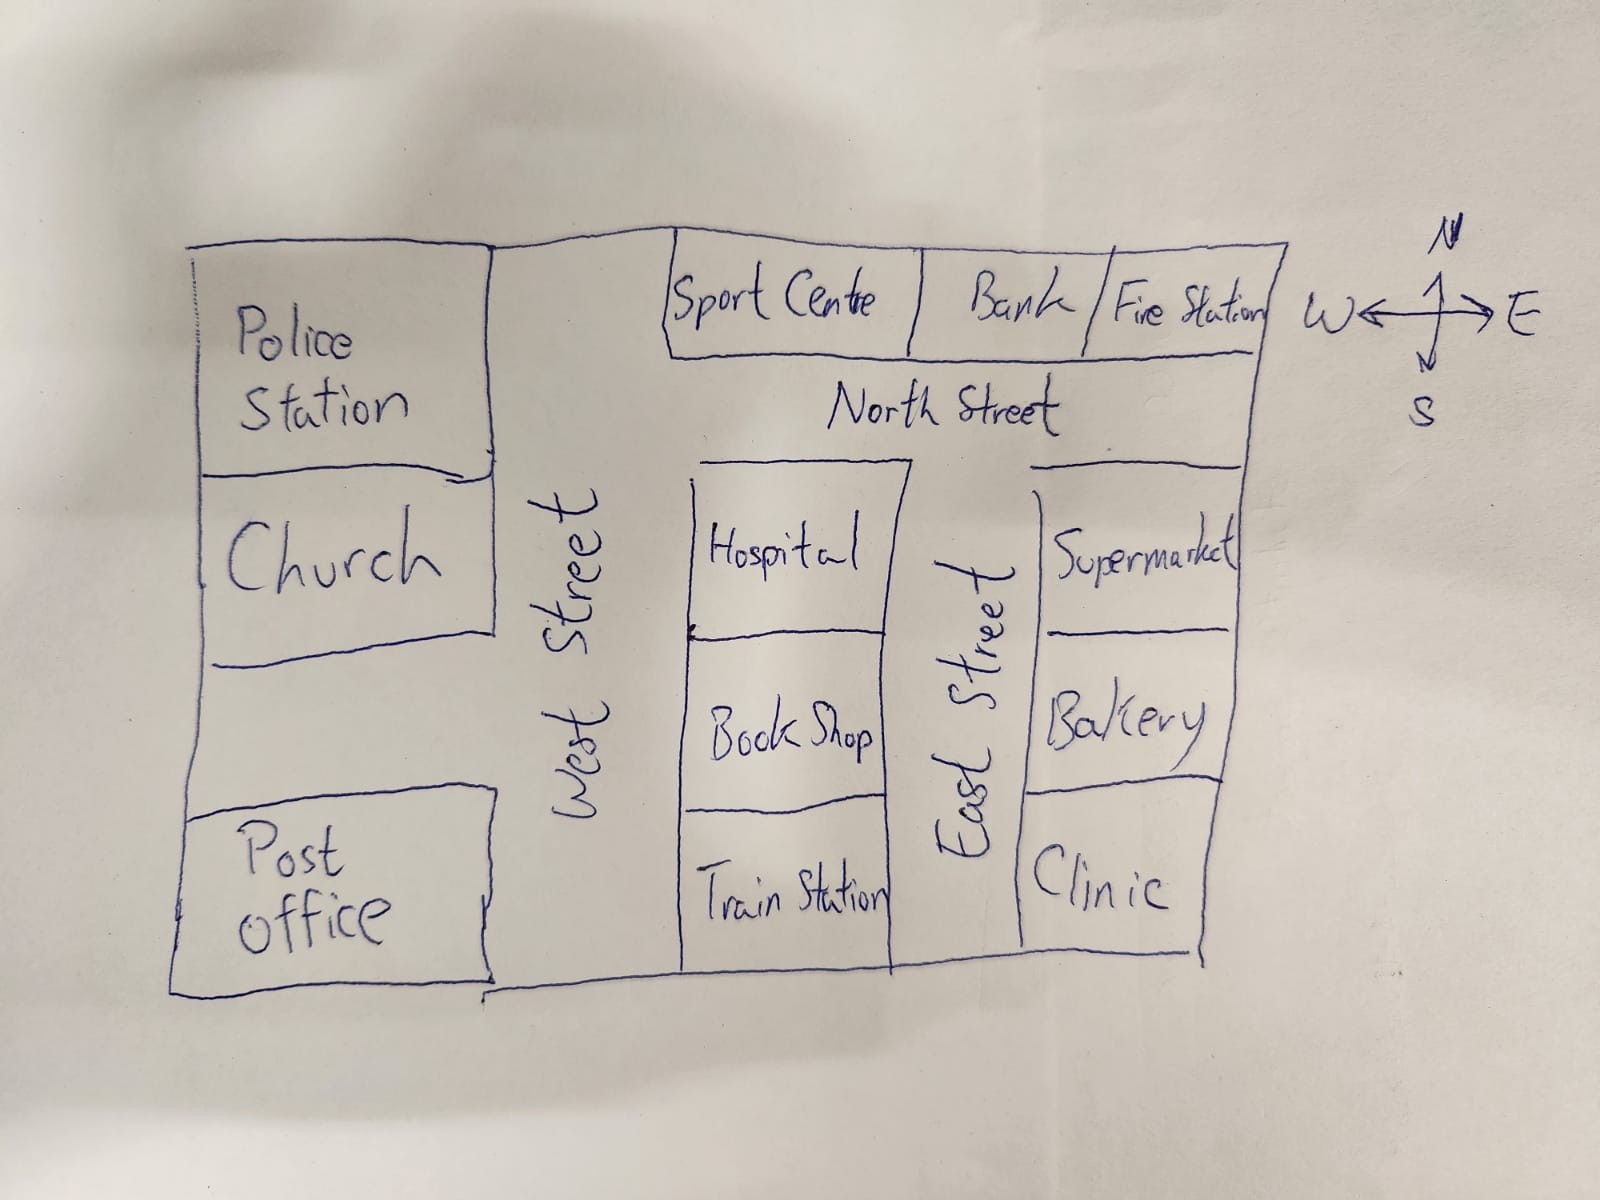 Police
Station
Church
Post
office
West Street
Sport Centre
Bank
Fire Station
North Street
Hospital
Book Shop
Train Station
East Street
Supermarket
Bakery
Clinic
N
W
E
S